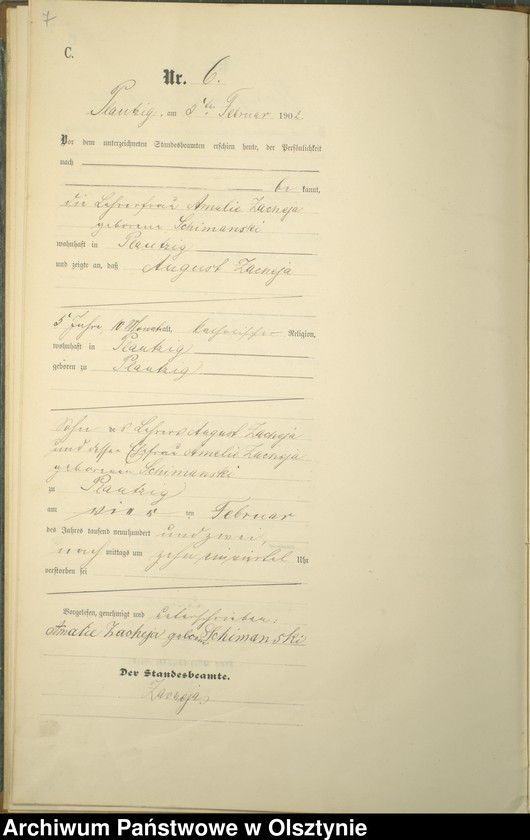 7
C.
Nr. 6.
Plautzig, am 5ten Februar 1902
Vor dem unterzeichneten Standesbeamten erschien heute, der Persönlichkeit
nach
be kannt,
die Lehrerfrau Amalie Zacheja
geborene Schimanski
wohnhaft in Plautzig
und zeigte an, daß August Zacheja
5 Jahre, 10 Monat alt, katholischer Religion,
wohnhaft in Plautzig
geboren zu Plautzig
Sohn des Lehrers August Zacheja
und dessen Ehefrau Amalie Zacheja
geborenen Schimanski
zu Plautzig
am vier ten Februar
des Jahres tausend neunhundert und zwei,
nach mittags um zehn Uhr
verstorben sei
Vorgelesen, genehmigt und unterschrieben.
Amalie Zacheja geborn Schimanski
Der Standesbeamte.
Zacheja
Archiwum Państwowe w Olsztynie